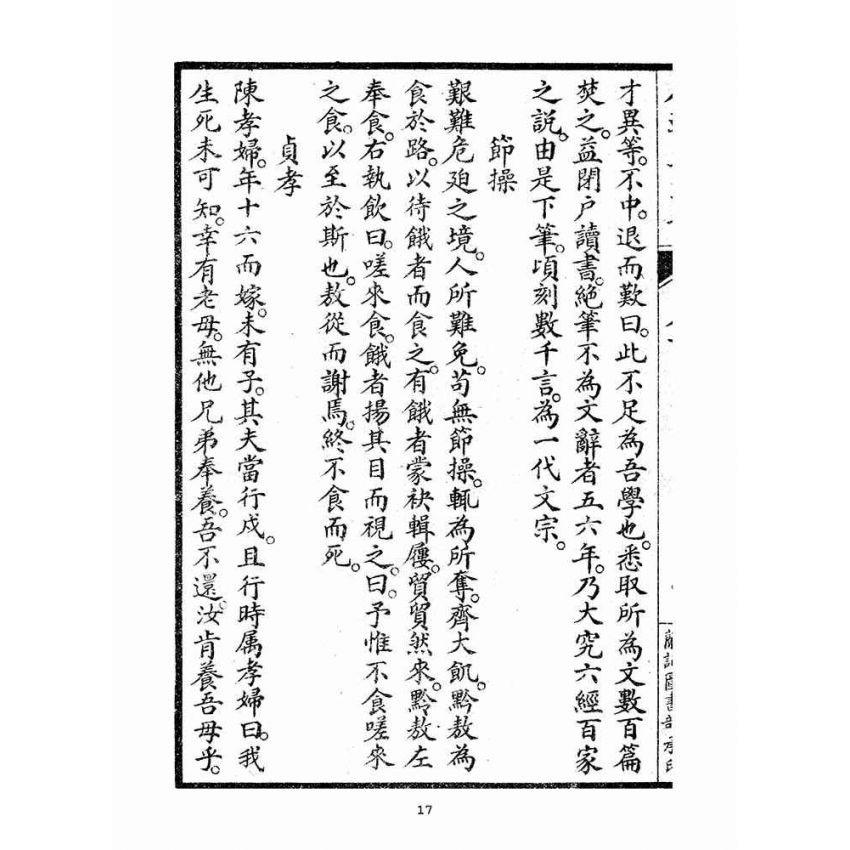 才異等。不中。退而歎曰。此不足為吾學也。悉取所為文數百篇
焚之。益閉户讀書。絕筆不為文辭者五六年。乃大究六經百家
之說。由是下筆。頃刻數千言。為一代文宗。
節操
艱難危廹之境。人所難免。苟無節操。輒為所奪。齊大飢。黔敖為
食於路。以待餓者而食之。有餓者蒙袂輯屨。貿貿然來。黔敖左
奉食。右執飲。曰。嗟來食。餓者揚其目而視之。曰。予惟不食嗟來
之食。以至於斯也。敖從而謝焉。終不食而死。
貞孝
陳孝婦。年十六而嫁。未有子。其夫當行戍。且行時属孝婦曰。我
生死未可知。幸有老母。無他兄弟奉養。吾不還。汝肯養吾母乎。
17